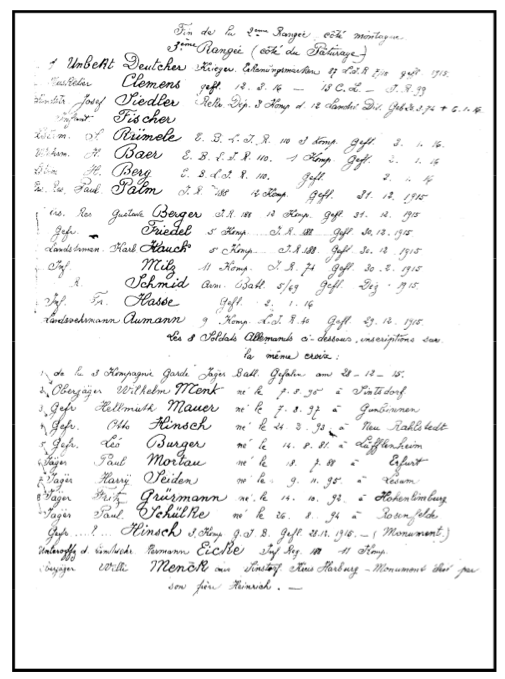 Fin de la 2ème Rangée, côté montagne
3ème Rangée (côté du Pâturage)
1 Unbekt Deutcher Krieger. gefl. 1915.
Musketier Clemens gefl. 12. 3. 16 —
Josef Siedler 3 Komp. d. 12 6. 1. 16
Infant Fischer
Rümele E. B. L. I. R. 110 3 Komp. Gefl. 2. 1. 16.
Wehrm. H. Baer E. B. L. I. R. 110. 1 Komp. Gefl. 2. 1. 16
H. Berg E. B. L. I. R. 110. Gefl. 2. 1. 16
Paul Palm I. R. 188 12 Komp. Gefl. 31. 12. 1915
Res. Gustave Berger I. R. 188 12 Komp. Gefl. 31. 12. 1915
Gefr. Friedel 5 Komp. I. R. 188 Gefl. 30. 12. 1915
Landsturm. Karl Hauck 5 Komp. I. R. 188. Gefl. 30. 12. 1915
Inf. Milz 11 Komp. I. R. 74 Gefl. 30. 2. 1915
R. Schmid Arm. Batl. 5/69 Gefl. Dez. 1915
Inf. Fr. Hasse Gefl. 2. 1. 16
Landwehrmann Aumann 9 Komp. L. I. R. 40 Gefl. 29. 12. 1915
Les 8 Soldats Allemands ci-dessous, inscriptions sur
la même croix:
de la 3 Kompagnie Garde Jäger Batl. Gefallen am 28-12-15.
Oberjäger Wilhelm Menk né le 7. 8. 95 à
Gefr Hellmuth Mauer né le 7. 8. 97 à Gumbinnen
Gefr. Otto Hinsch né le 24. 2. 93 à Neu Rahlstedt
5 Gefr. Léo Burger né le 14. 8. 81. à Löfflenheim
Jäger Paul Mortau né le 18. 7. 88 à Erfurt
Jäger Harry Seiden né le 9. 11. 95. à Lesum
8 Jäger Fritz Grürmann né le 14. 10. 92. à Hohenlimburg
Jäger Paul Schülke né le 26. 8. 94 à Rosenfelde
Gefr. ....?... Hinsch 3. Komp. G. J. B. Gefl. 28.12. 1915. — (Monument.)
Unteroffz d Hermann Eicke Inf Reg. 188 11 Komp.
Oberjäger Willi Menck aus Sinstorf. Kreis Harburg — Monument élevé par
son frère Heinrich. —